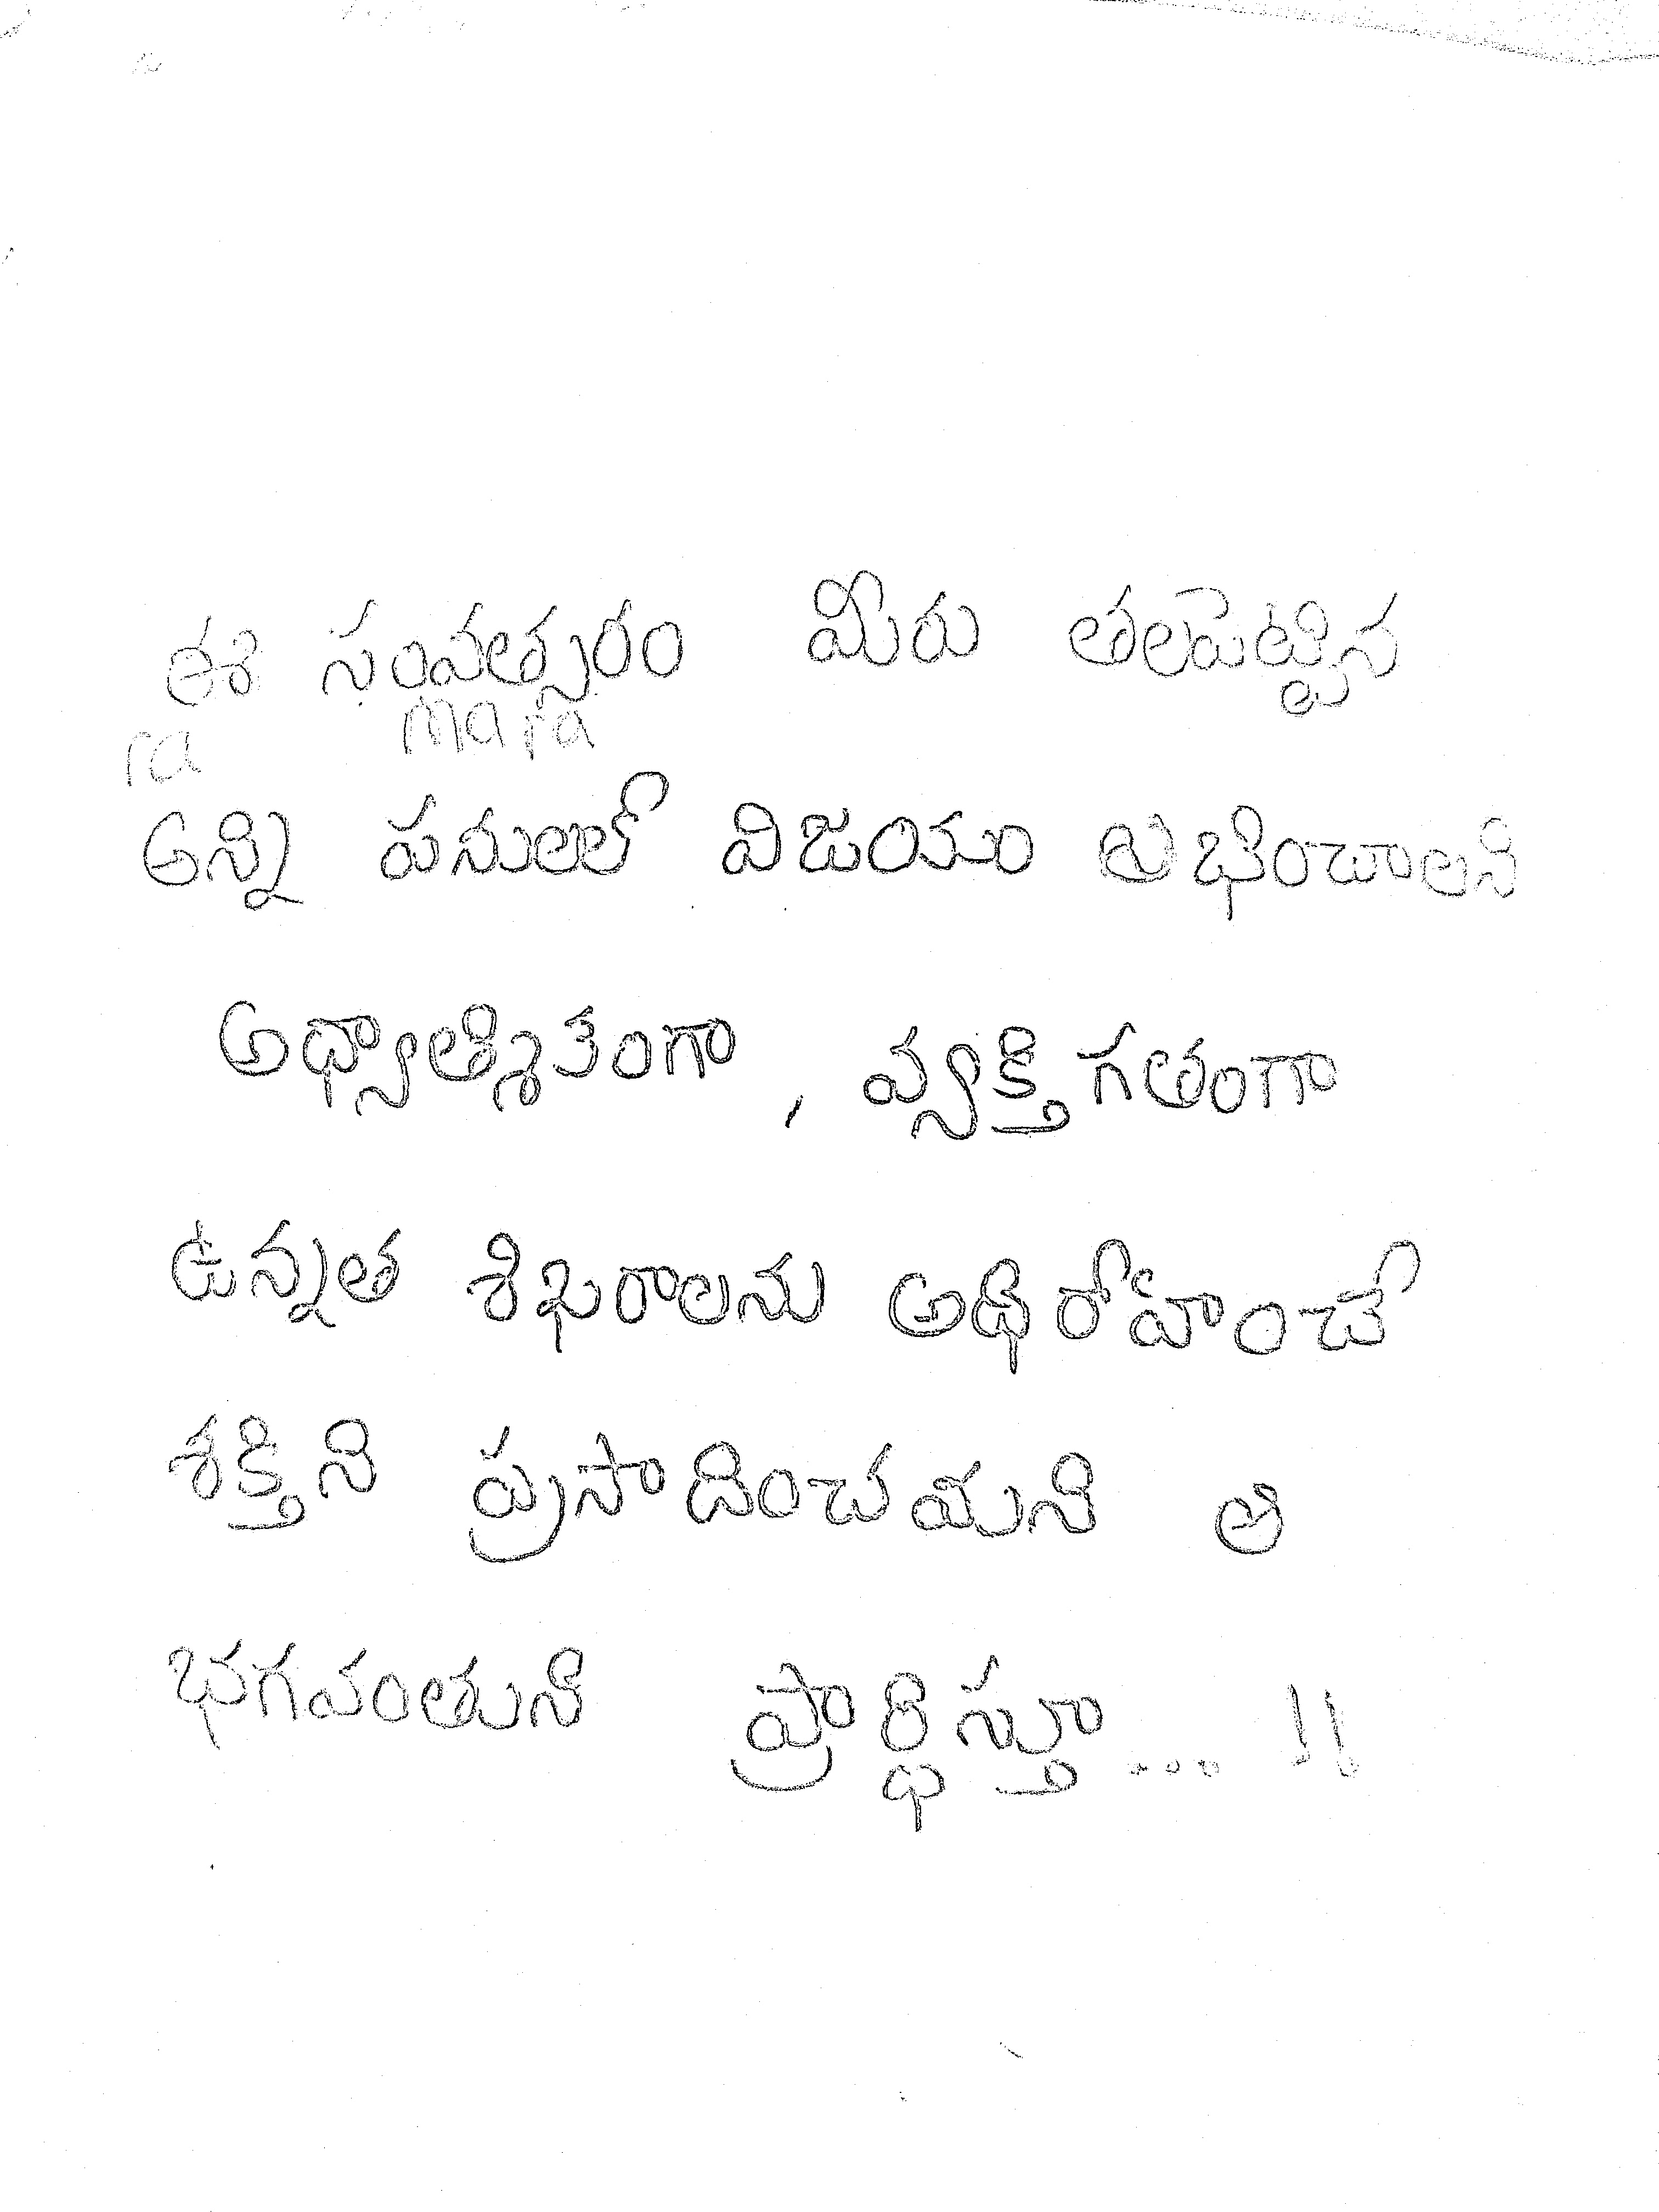 ఈ సంవత్సరం మీరు తలపెట్టిన
ra mara
అన్ని పనులలో విజయం లభించాలని
అధ్యాత్మికంగా, వ్యక్తిగతంగా
ఉన్నత శిఖరాలను అధిరోహించే
శక్తిని ప్రసాదించమని ఆ
భగవంతుని ప్రార్థిస్తూ... !!